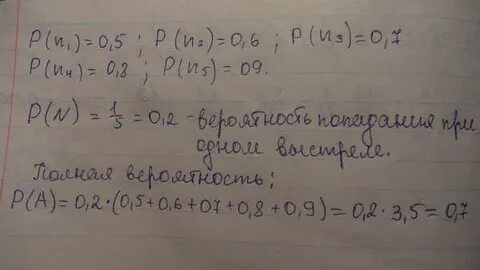 P(n₁)=0,5 ; P(n₂)=0,6 ; P(n₃)=0,7
P(n₄)=0,8 ; P(n₅)=09.
P(N) = 1/5 = 0,2 - вероятность попадания при
одном выстреле.
Полная вероятность;
P(A)=0,2·(0,5+0,6+07+0,8+0,9)=0,2·3,5=0,7